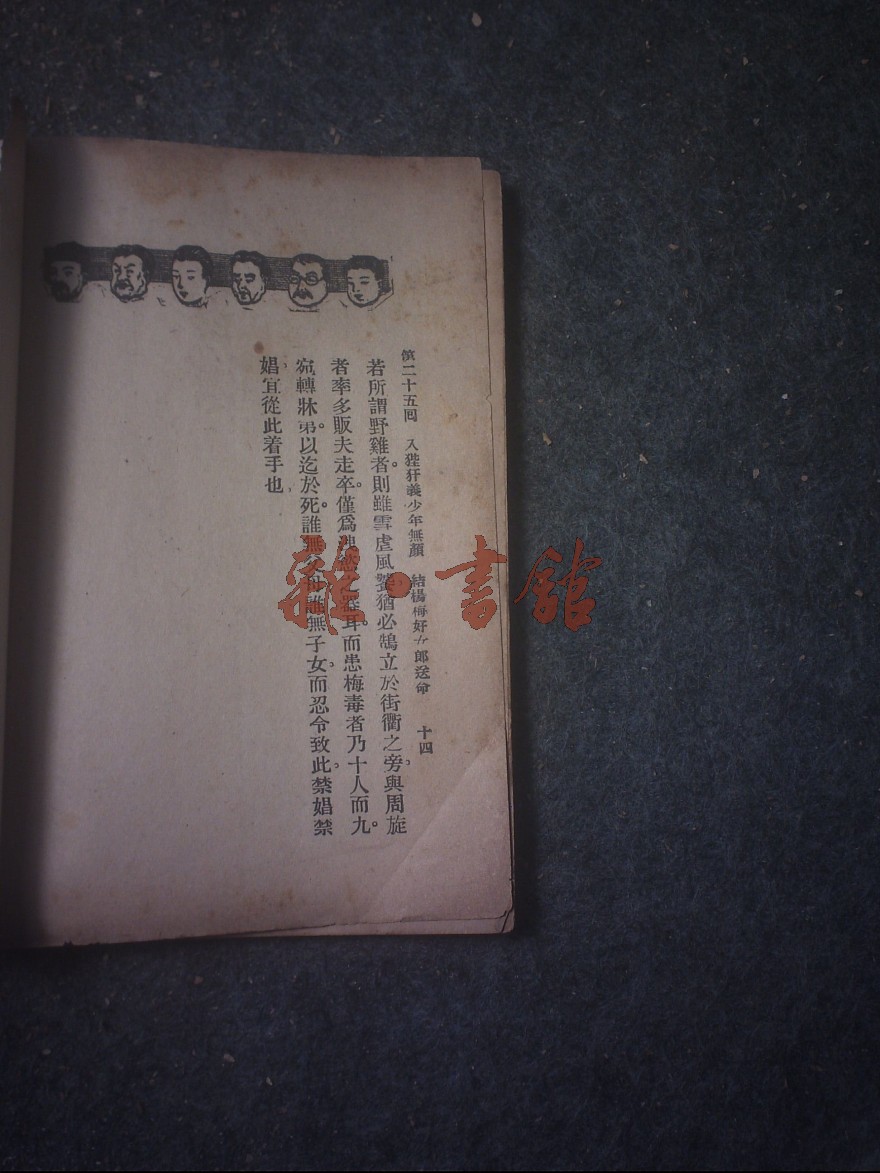 第二十五回 入狴犴義少年無顏 結楊梅好女郎送命 十四
若所謂野雞者。則雖雪虐風饕。猶必鵠立於街衢之旁。與周旋
者率多販夫走卒。僅爲洩慾器耳。而患梅毒者乃十人而九。
宛轉牀笫。以迄於死。誰無父母。誰無子女。而忍令致此。禁娼禁
娼。宜從此着手也。
雜·書館